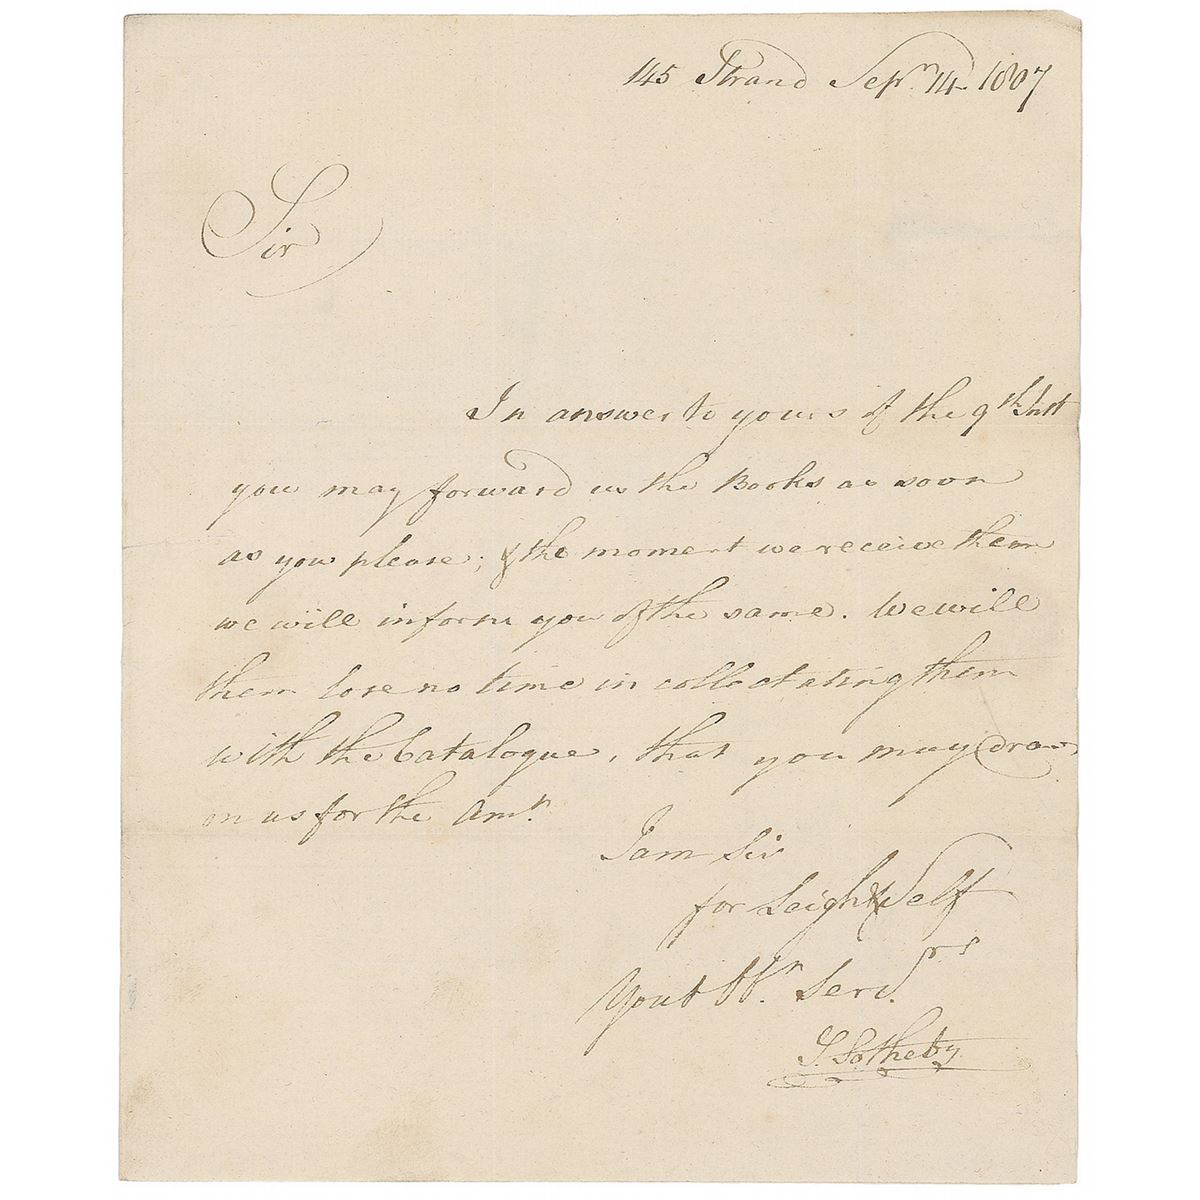 145 Strand Sepr. 14 1807
Sir
In answer to yours of the 9th Inst
you may forward us the Books as soon
as you please; & the moment we receive them
we will inform you of the same. We will
then lose no time in collectating them
with the Catalogue, that you may draw
on us for the Amt.
I am Sir
for Leigh & Self
Your Ob
S. Sotheby